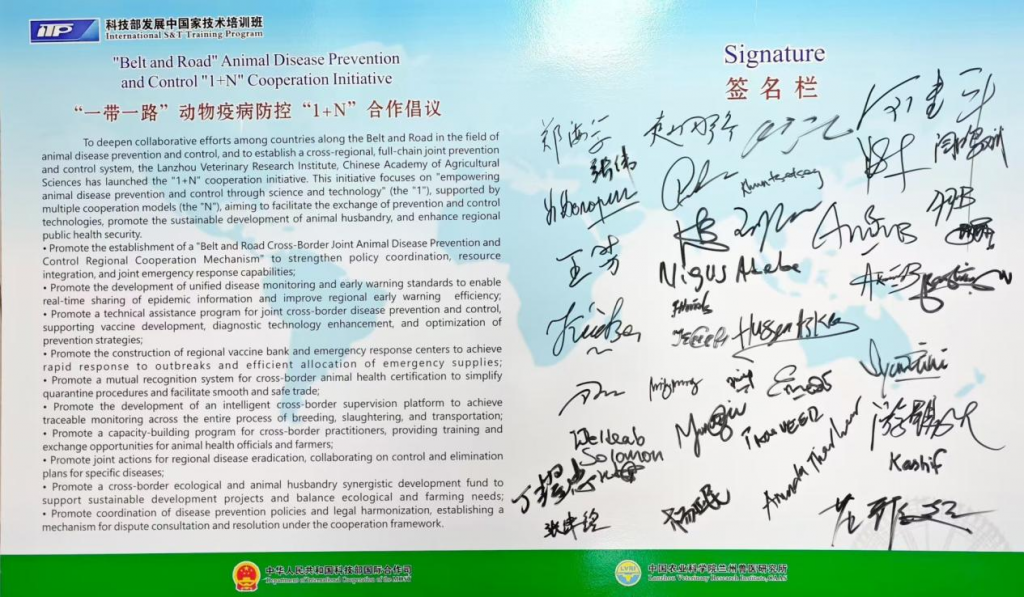 iTP
科技部发展中国家技术培训班
International S&T Training Program
"Belt and Road" Animal Disease Prevention
and Control "1+N" Cooperation Initiative
“一带一路”动物疫病防控“1+N”合作倡议
To deepen collaborative efforts among countries along the Belt and Road in the field of
animal disease prevention and control, and to establish a cross-regional, full-chain joint prevention
and control system, the Lanzhou Veterinary Research Institute, Chinese Academy of Agricultural
Sciences has launched the "1+N" cooperation initiative. This initiative focuses on "empowering
animal disease prevention and control through science and technology" (the "1"), supported by
multiple cooperation models (the "N"), aiming to facilitate the exchange of prevention and control
technologies, promote the sustainable development of animal husbandry, and enhance regional
public health security.
• Promote the establishment of a "Belt and Road Cross-Border Joint Animal Disease Prevention and
Control Regional Cooperation Mechanism" to strengthen policy coordination, resource
integration, and joint emergency response capabilities;
• Promote the development of unified disease monitoring and early warning standards to enable
real-time sharing of epidemic information and improve regional early warning efficiency;
• Promote a technical assistance program for joint cross-border disease prevention and control,
supporting vaccine development, diagnostic technology enhancement, and optimization of
prevention strategies;
• Promote the construction of regional vaccine bank and emergency response centers to achieve
rapid response to outbreaks and efficient allocation of emergency supplies;
• Promote a mutual recognition system for cross-border animal health certification to simplify
quarantine procedures and facilitate smooth and safe trade;
• Promote the development of an intelligent cross-border supervision platform to achieve
traceable monitoring across the entire process of breeding, slaughtering, and transportation;
• Promote a capacity-building program for cross-border practitioners, providing training and
exchange opportunities for animal health officials and farmers;
• Promote joint actions for regional disease eradication, collaborating on control and elimination
plans for specific diseases;
• Promote a cross-border ecological and animal husbandry synergistic development fund to
support sustainable development projects and balance ecological and farming needs;
• Promote coordination of disease prevention policies and legal harmonization, establishing a
mechanism for dispute consultation and resolution under the cooperation framework.
Signature
签名栏
郑海学
张伟
王芳
Nigus Abebe
Solomon
TANVEER
Kashif
中华人民共和国科技部国际合作司
Department of International Cooperation of the MOST
中国农业科学院兰州兽医研究所
Lanzhou Veterinary Research Institute, CAAS